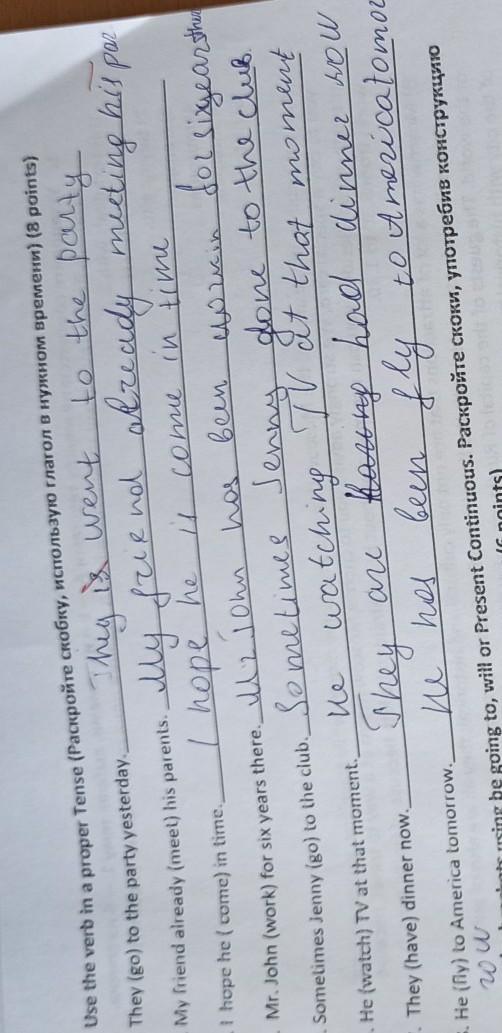 Use the verb in a proper Tense (Раскройте скобку, использую глагол в нужном времени) (8 points)
They (go) to the party yesterday. They is went to the party
My friend already (meet) his parents. My friend already meeting his par
I hope he ( come) in time. I hope he is come in time
Mr. John (work) for six years there. Mr John has been worwin for sixyear
Sometimes Jenny (go) to the club. Sometimes Jenny gone to the club.
He (watch) TV at that moment. He watching TV at that moment
They (have) dinner now. They are had dinner now
He (fly) to America tomorrow. He has been fly to America tomor
row
using be going to, will or Present Continuous. Раскройте скоки, употребив конструкцию
points)